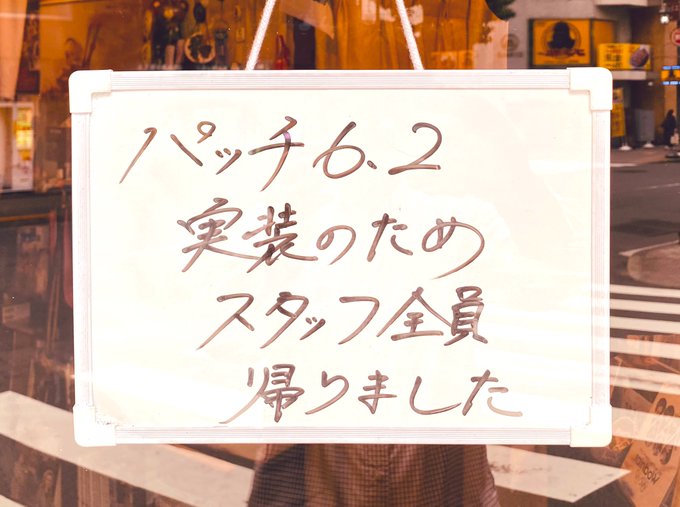 パッチ6.2
実装のため
スタッフ全員
帰りました